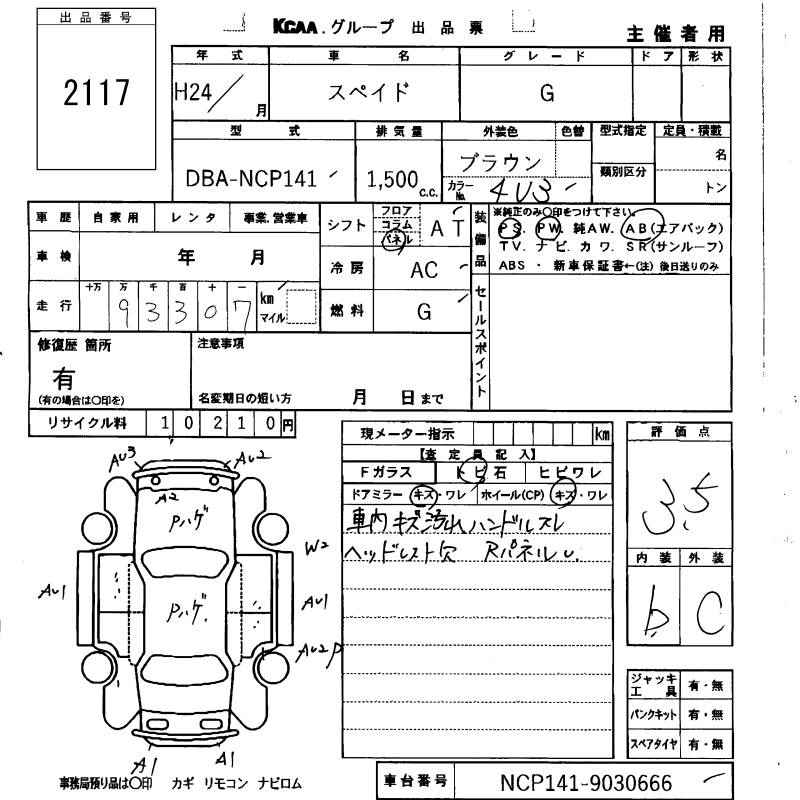 出品番号
2117
KCAA.グループ 出品票
主催者用
年式 車名 グレード ドア 形状
H24/ 月 スペイド G
型式 排気量 外装色 色替 型式指定 定員・積載
DBA-NCP141 1,500 c.c. ブラウン 類別区分 名
カラーNo. 4U3 トン
車歴 自家用 レンタ 事業.営業車
シフト フロア コラム パネル AT
装備品
※純正のみ○印をつけて下さい。
PS. PW. 純AW. AB(エアバック)
TV. ナビ. カワ. SR(サンルーフ)
ABS ・ 新車保証書←(注) 後日送りのみ
車検 年 月
冷房 AC
走行 十万 万 千 百 十 一
93307 km マイル
燃料 G
セールスポイント
修復歴 箇所
有
(有の場合は○印を)
注意事項
名変期日の短い方 月 日まで
リサイクル料 10210円
現メーター指示 km
【査定員記入】
Fガラス トビ石 ヒビワレ
ドアミラー キズ・ワレ ホイール(CP) キズ・ワレ
車内キズ汚れ ハンドルスレ
ヘッドレスト欠 RパネルU.
評価点
3.5
内装 外装
b C
AU3 AU2
A2
Pハゲ
W2
AU1 Pハゲ. AU1
AU2P
A1 A1
ジャッキ工具 有・無
パンクキット 有・無
スペアタイヤ 有・無
事務局預り品は○印 カギ リモコン ナビロム
車台番号 NCP141-9030666